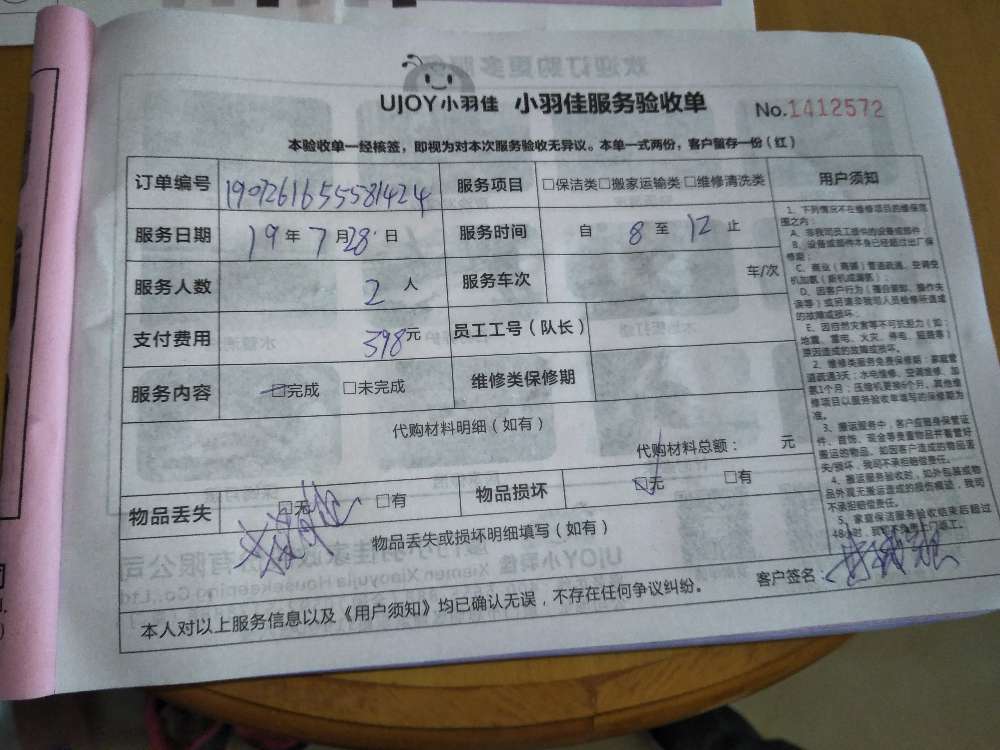 UJOY小羽佳 小羽佳服务验收单 No.1412572
本验收单一经核签，即视为对本次服务验收无异议。本单一式两份，客户留存一份（红）
订单编号 1907261655581424 服务项目 □保洁类□搬家运输类□维修清洗类 用户须知
服务日期 19年7月28日 服务时间 自 8 至 12 止
服务人数 2 人 服务车次 车/次
支付费用 398元 员工工号（队长）
服务内容 □完成 □未完成 维修类保修期
代购材料明细（如有）
代购材料总额： 元
物品丢失 □无 □有 物品损坏 □无 □有
物品丢失或损坏明细填写（如有）
本人对以上服务信息以及《用户须知》均已确认无误，不存在任何争议纠纷。 客户签名：
1、下列情况不在维修项目的维保范
围之内：
A、非我司员工提供的设备或部件；
B、设备或部件本身已经超过出厂保
修期；
C、商业（商铺）管道疏通、空调空
机加氨（新机或漏氨）；
D、因客户行为（擅自装卸、操作失
误等）或另请非我司人员检修所造成
的故障或损坏；
E、因自然灾害等不可抗拒力（如：
地震、雷电、火灾、停电、短路等）
原因造成的故障或损坏。
2、维修类服务免费保修期：家庭管
道疏通3天；水电维修、空调维修、加
氨1个月；压缩机更换6个月，其他维
修项目以服务验收单填写的保修期为
准。
3、搬运服务中，客户应随身保管证
件、首饰、现金等贵重物品并看管好
搬运的物品，如因客户造成的物品丢
失/损坏，我司不承担赔偿责任。
4、搬运服务验收时，如外包装或物
品外观无搬运造成的损伤痕迹，我司
不承担赔偿责任。
5、家庭保洁服务验收结束后超过
48小时，我司不免费上门返工。